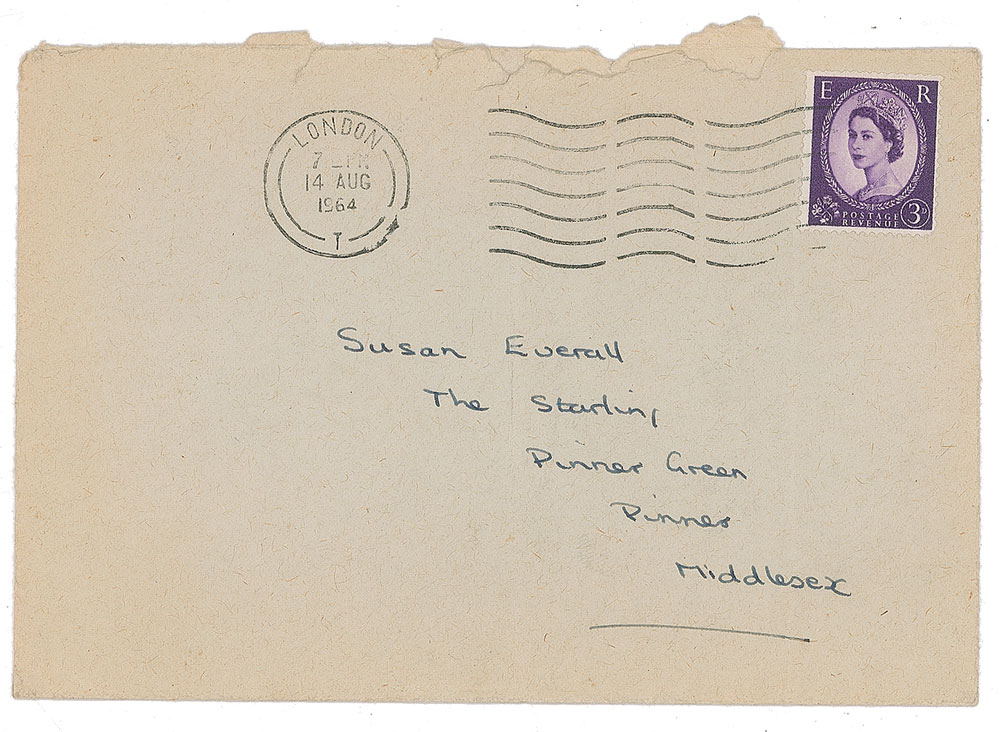 LONDON
7 — PM
14 AUG
1964
T
E R
POSTAGE
REVENUE
3D
Susan Everall
The Starling
Pinner Green
Pinner
Middlesex